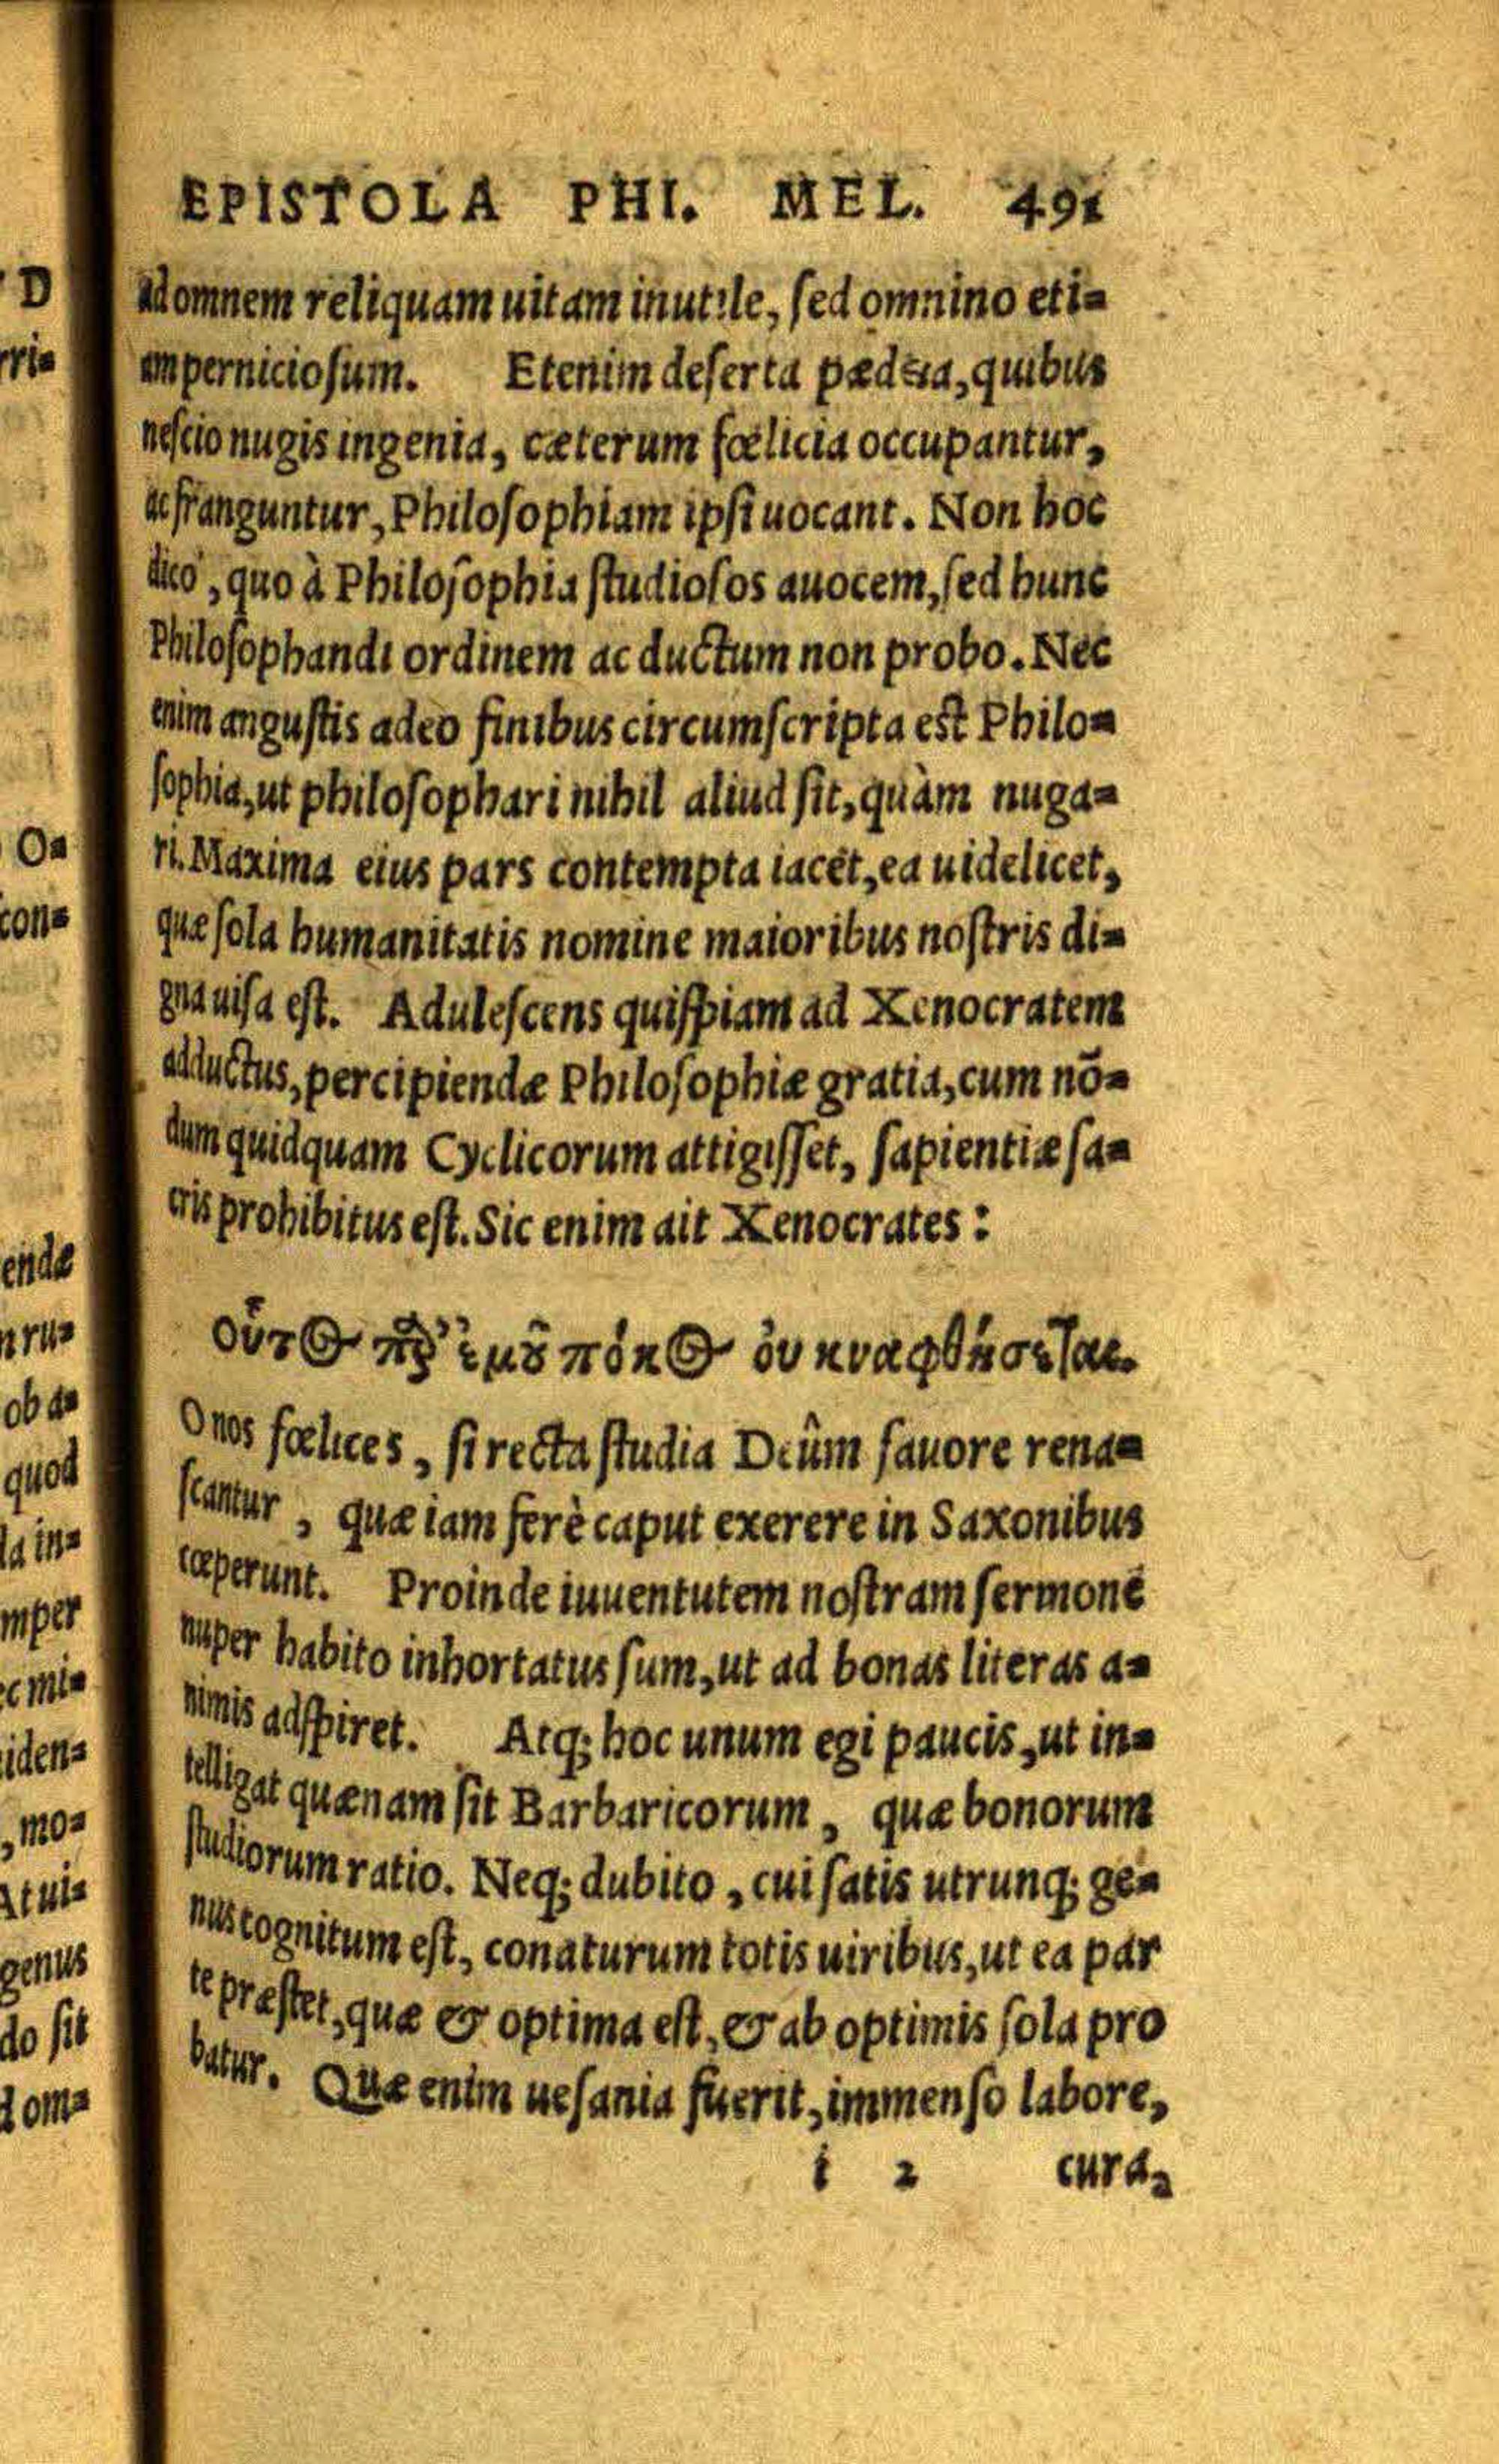 EPISTOLA PHI. MEL. 491
ad omnem reliquam uitam inutile, sed omnino eti-
am perniciosum. Etenim deserta pædeia, quibus
nescio nugis ingenia, cæterum fœlicia occupantur,
ac franguntur, Philosophiam ipsi uocant. Non hoc
dico, quo à Philosophia studiosos auocem, sed hunc
Philosophandi ordinem ac ductum non probo. Nec
enim angustis adeo finibus circumscripta est Philo-
sophia, ut philosophari nihil aliud sit, quàm nuga-
ri. Maxima eius pars contempta iacet, ea uidelicet,
quæ sola humanitatis nomine maioribus nostris di-
gna uisa est. Adulescens quispiam ad Xenocratem
adductus, percipiendæ Philosophiæ gratia, cum nō-
dum quidquam Cyclicorum attigisset, sapientiæ sa-
cris prohibitus est. Sic enim ait Xenocrates:
οὗτος παρ' ἐμοῦ πόκος ὀυ κναφθήσεται.
O nos fœlices, si recta studia Deûm fauore rena-
scantur, quæ iam ferè caput exerere in Saxonibus
cœperunt. Proinde iuuentutem nostram sermone
nuper habito inhortatus sum, ut ad bonas literas a-
nimis adspiret. Atq; hoc unum egi paucis, ut in-
telligat quænam sit Barbaricorum, quæ bonorum
studiorum ratio. Neq; dubito, cui satis utrunq; ge-
nus cognitum est, conaturum totis uiribus, ut ea par
te præstet, quæ & optima est, & ab optimis sola pro
batur. Quæ enim uesania fuerit, immenso labore,
i 2 cura,
D
rri-
O-
con-
endæ
n ru-
ob a-
quod
la in-
mper
c mi-
iden-
, mo-
At ui-
genus
do sit
d om-